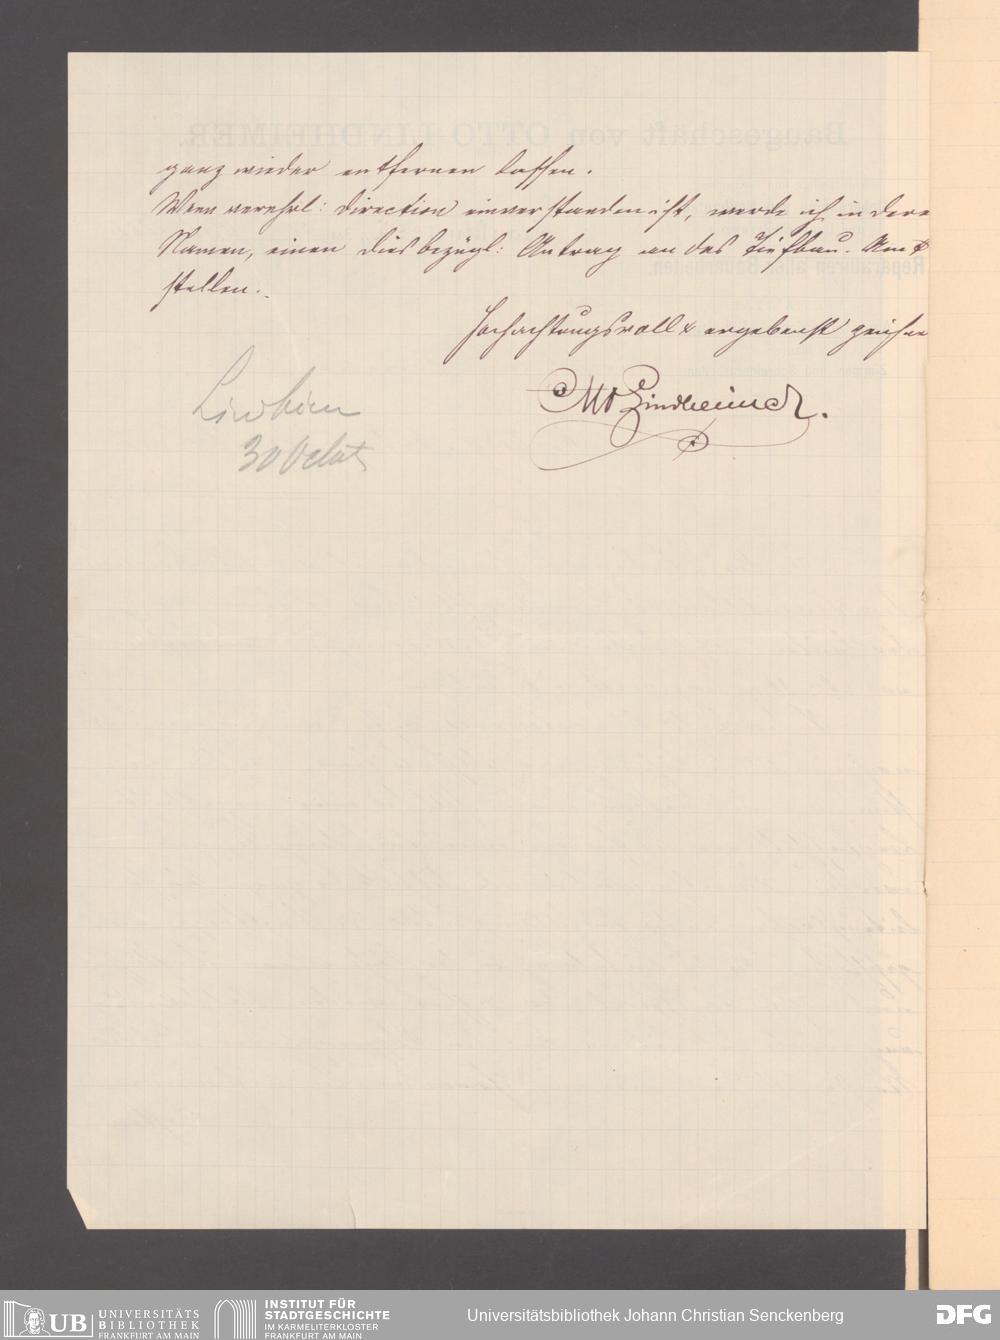 ganz wieder entfernen lassen.
Wenn verehrl: Direction einverstanden ist, werde ich in dere
Namen, einen diesbezügl: Antrag an das Tiefbau-Amt
stellen.
Hochachtungsvoll & ergebenst zeichne
Otto Lindheimer.
30
UB UNIVERSITÄTS
BIBLIOTHEK
FRANKFURT AM MAIN
INSTITUT FÜR
STADTGESCHICHTE
IM KARMELITERKLOSTER
FRANKFURT AM MAIN
Universitätsbibliothek Johann Christian Senckenberg
DFG